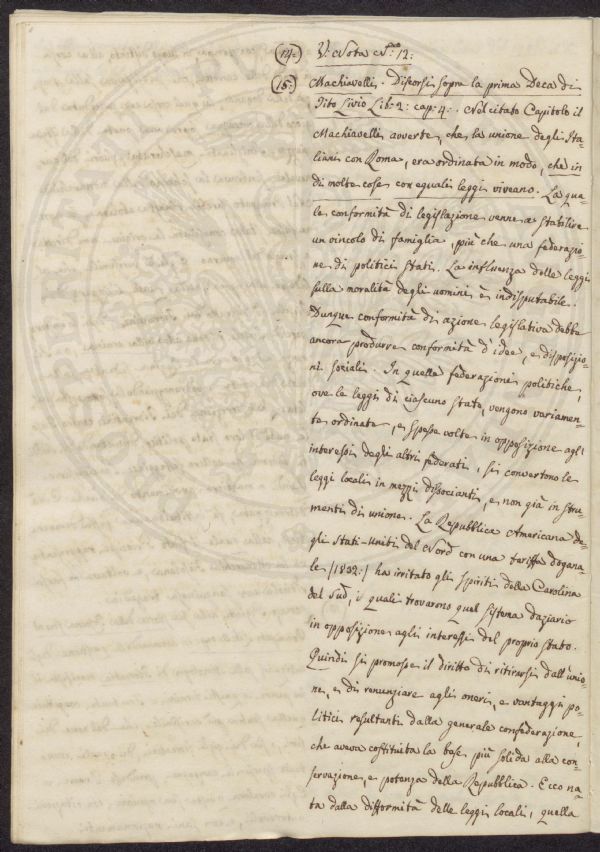 (14:) V: Nota N.ro 12:
(15:) Machiavelli. Discorsi sopra la prima Deca di
Tito Livio Lib: 2: cap: 4:. Nel citato Capitolo il
Machiavelli avverte, che la unione degli Ita-
liani con Roma, era ordinata in modo, che in
di molte cose con eguali leggi viveano. La qua-
le conformità di legislazione venne a stabilire
un vincolo di famiglia, più che una federazio-
ne di politici stati. La influenza delle leggi
sulla moralità degli uomini è indisputabile.
Dunque conformità di azione legislativa debbe
ancora produrre conformità d'idee, e disposizio-
ni sociali. In quelle federazioni politiche,
ove le leggi di ciascuno stato, vengono variamen-
te ordinate, e spesse volte in opposizione agl'
interessi degli altri federati, si convertono le
leggi locali in mezzi dissocianti, e non già in stru-
menti di unione. La Repubblica Americana de-
gli Stati-uniti del Nord con una tariffa dogana-
le (1832:) ha irritato gli spiriti della Carolina
del Sud, i quali trovarono quel sistema daziario
in opposizione agli interessi del proprio stato.
Quindi si promosse il diritto di ritirarsi dall'unio-
ne, e di renunziare agli oneri, e vantaggi po-
litici resultanti dalla generale confederazione,
che aveva costituita la base più solida alla con-
servazione, e potenza della Repubblica. Ecco na-
ta dalla difformità delle leggi locali, quella